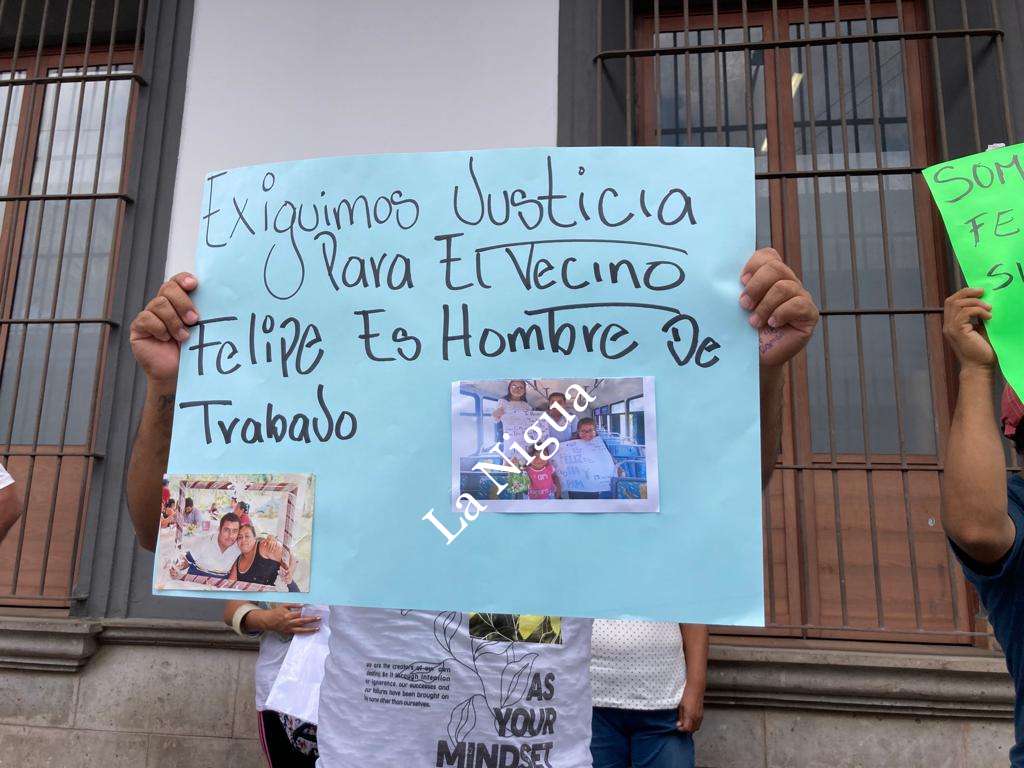 Exiguimos Justicia
Para El Vecino
Felipe Es Hombre De
Trabajo
La Nigua
SOM
FE
SU
are the creators of our own
through intention
or ignorance, our successes and
our failures have been brought on
none other than ourselves.
AS
YOUR
MINDSET